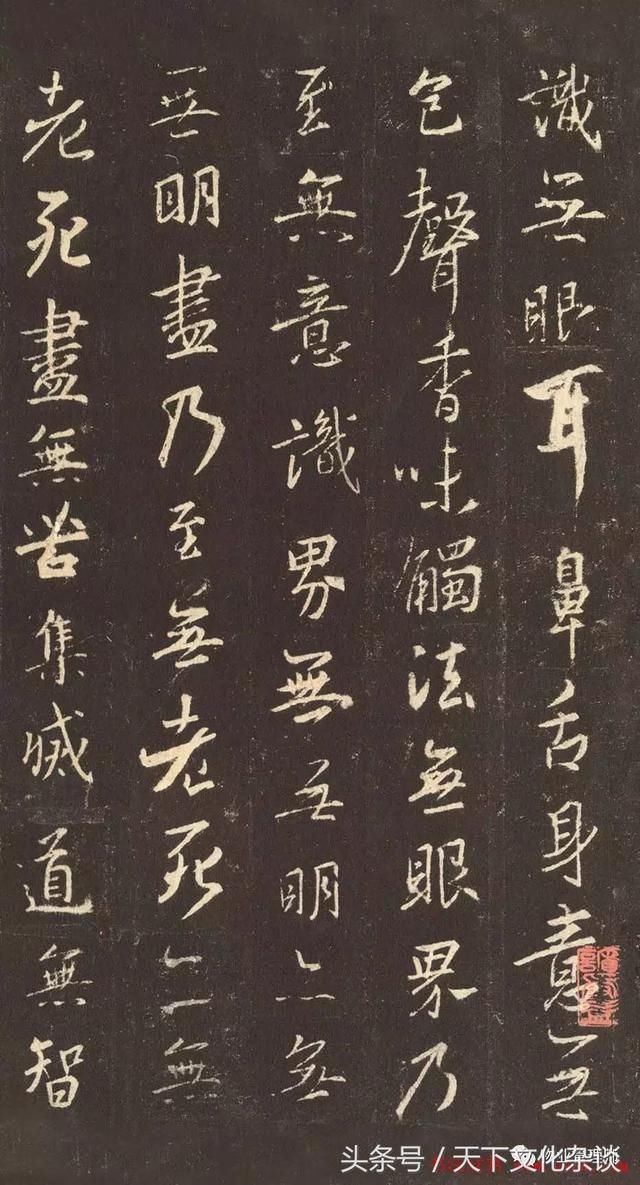 識無眼耳鼻舌身意無
色聲香味觸法無眼界乃
至無意識界無無明亦無
無明盡乃至無老死亦無
老死盡無苦集滅道無智
头条号／天下文化杂谈